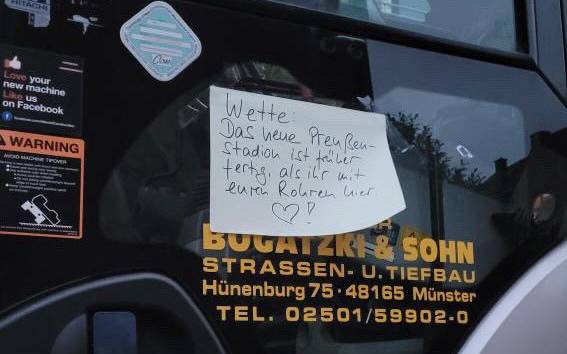 HITACHI
Love your
new machine
Like us
on Facebook
WARNING
AVOID MACHINE TIPOVER
Wette:
Das neue Preußen-
stadion ist früher
fertig, als ihr mit
euren Rohren hier
♡!
BOGATZKI & SOHN
STRASSEN- U. TIEFBAU
Hünenburg 75 · 48165 Münster
TEL. 02501/59902-0